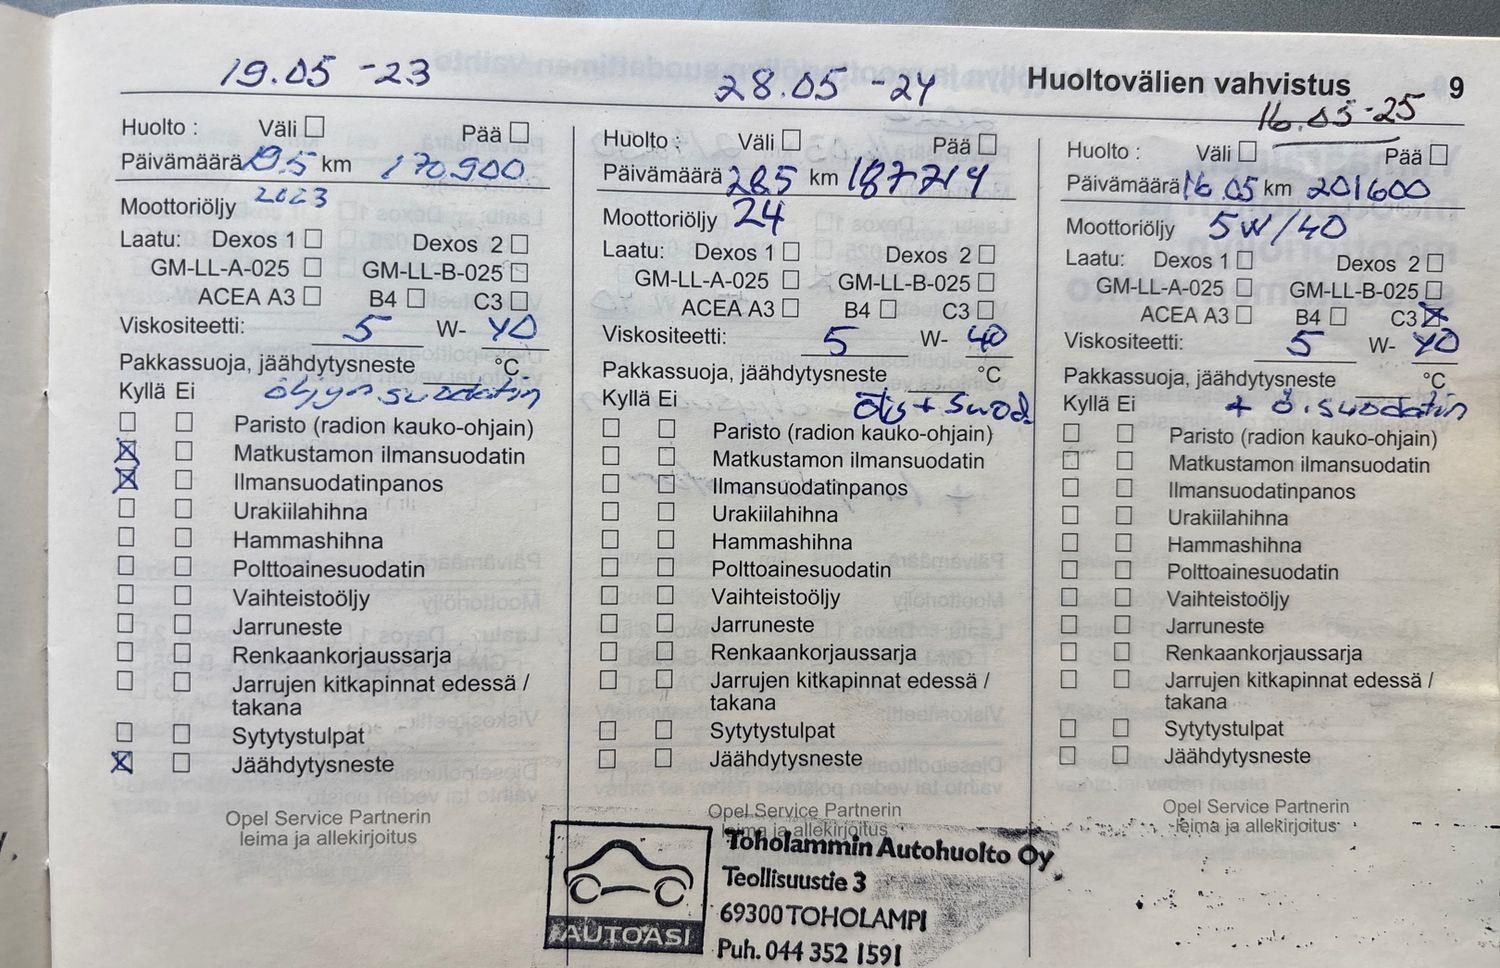 Huoltovälien vahvistus 9
19.05 -23
Huolto : Väli ☐ Pää ☐
Päivämäärä 19.5 km 170900
2023
Moottoriöljy
Laatu: Dexos 1 ☐ Dexos 2 ☐
GM-LL-A-025 ☐ GM-LL-B-025 ☐
ACEA A3 ☐ B4 ☐ C3 ☐
Viskositeetti: 5 W- 40
Pakkassuoja, jäähdytysneste °C
Kyllä Ei öljyn suodatin
☐ ☐ Paristo (radion kauko-ohjain)
☒ ☐ Matkustamon ilmansuodatin
☒ ☐ Ilmansuodatinpanos
☐ ☐ Urakiilahihna
☐ ☐ Hammashihna
☐ ☐ Polttoainesuodatin
☐ ☐ Vaihteistoöljy
☐ ☐ Jarruneste
☐ ☐ Renkaankorjaussarja
☐ ☐ Jarrujen kitkapinnat edessä /
takana
☐ ☐ Sytytystulpat
☒ ☐ Jäähdytysneste
Opel Service Partnerin
leima ja allekirjoitus
28.05 -24
Huolto : Väli ☐ Pää ☐
Päivämäärä 28.5 km 187714
24
Moottoriöljy
Laatu: Dexos 1 ☐ Dexos 2 ☐
GM-LL-A-025 ☐ GM-LL-B-025 ☐
ACEA A3 ☐ B4 ☐ C3 ☐
Viskositeetti: 5 W- 40
Pakkassuoja, jäähdytysneste °C
Kyllä Ei + suod
☐ ☐ Paristo (radion kauko-ohjain)
☐ ☐ Matkustamon ilmansuodatin
☐ ☐ Ilmansuodatinpanos
☐ ☐ Urakiilahihna
☐ ☐ Hammashihna
☐ ☐ Polttoainesuodatin
☐ ☐ Vaihteistoöljy
☐ ☐ Jarruneste
☐ ☐ Renkaankorjaussarja
☐ ☐ Jarrujen kitkapinnat edessä /
takana
☐ ☐ Sytytystulpat
☐ ☐ Jäähdytysneste
Opel Service Partnerin
leima ja allekirjoitus
AUTOASI
Toholammin Autohuolto Oy
Teollisuustie 3
69300 TOHOLAMPI
Puh. 044 352 1591
16.05-25
Huolto : Väli ☐ Pää ☐
Päivämäärä 16.05 km 201600
Moottoriöljy 5W/40
Laatu: Dexos 1 ☐ Dexos 2 ☐
GM-LL-A-025 ☐ GM-LL-B-025 ☐
ACEA A3 ☐ B4 ☐ C3 ☒
Viskositeetti: 5 W- 40
Pakkassuoja, jäähdytysneste °C
Kyllä Ei + ö.suodatin
☐ ☐ Paristo (radion kauko-ohjain)
☐ ☐ Matkustamon ilmansuodatin
☐ ☐ Ilmansuodatinpanos
☐ ☐ Urakiilahihna
☐ ☐ Hammashihna
☐ ☐ Polttoainesuodatin
☐ ☐ Vaihteistoöljy
☐ ☐ Jarruneste
☐ ☐ Renkaankorjaussarja
☐ ☐ Jarrujen kitkapinnat edessä /
takana
☐ ☐ Sytytystulpat
☐ ☐ Jäähdytysneste
Opel Service Partnerin
leima ja allekirjoitus